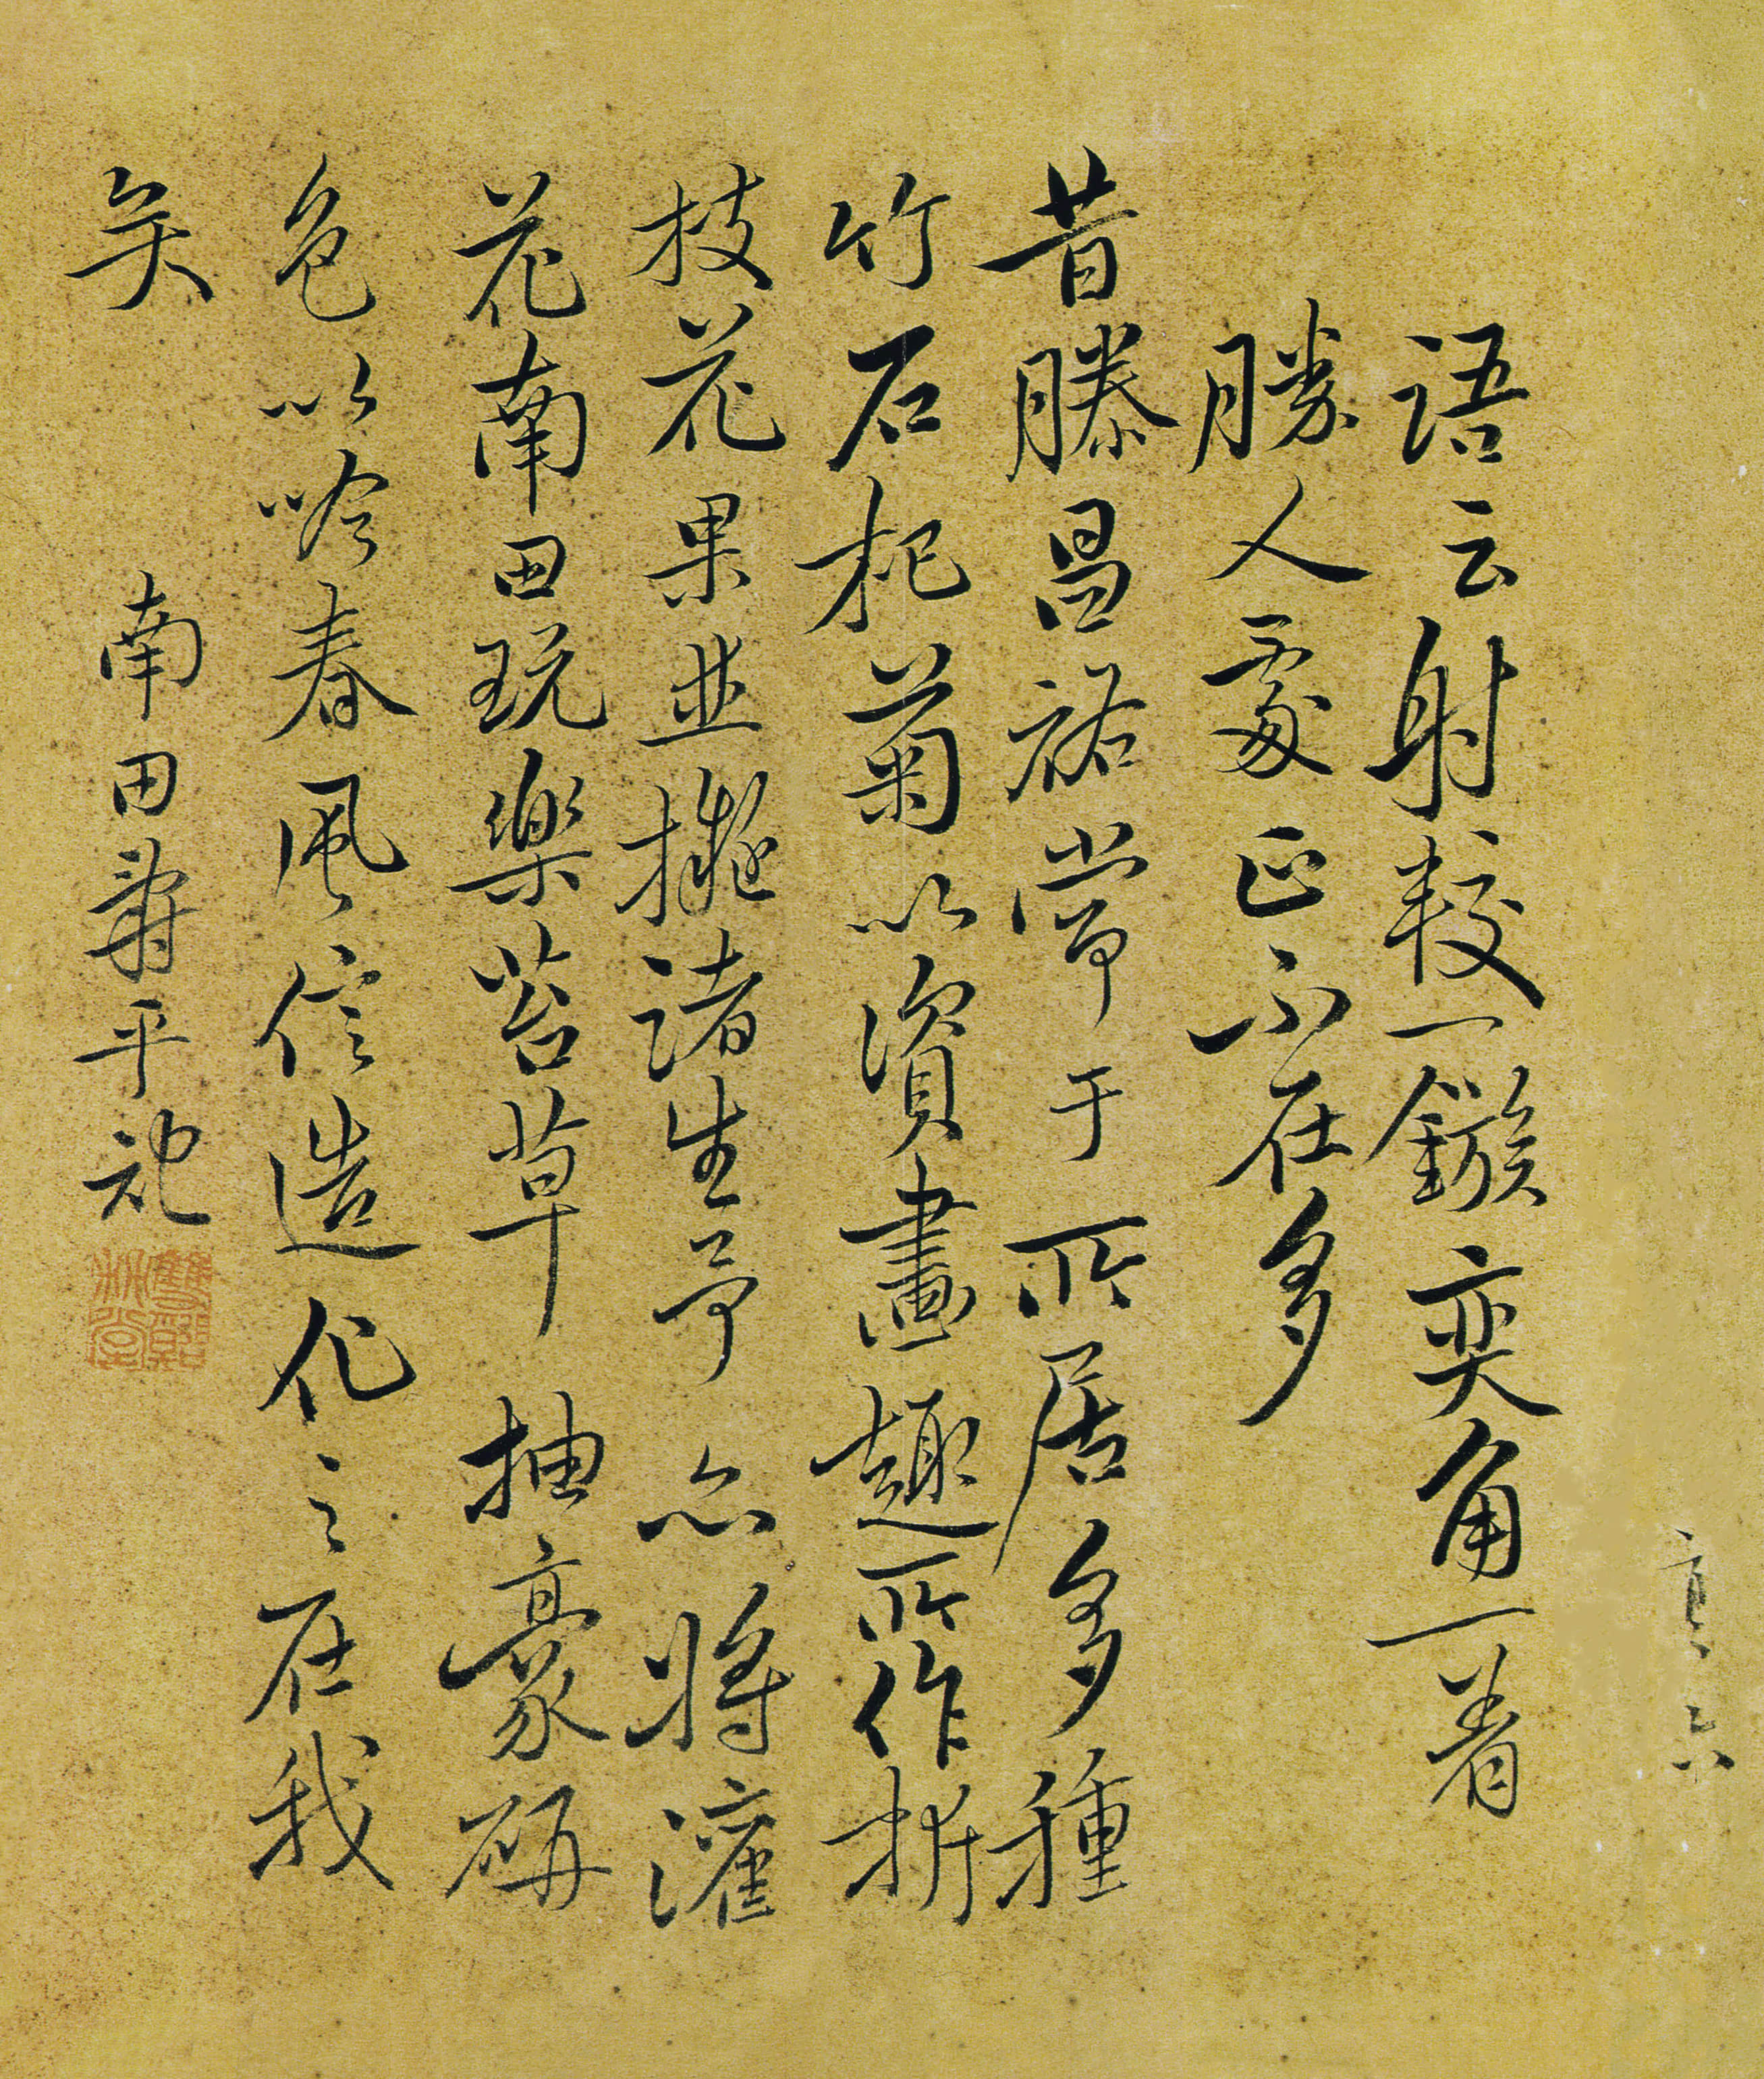 語云射較一鏃奕角一着
勝人處正不在多
昔滕昌祐常于所居多種
竹石杞菊以資畫趣所作折
枝花果並擬諸生予亦將灌
花南田玩樂苔草抽豪研
色以吟春風信造化之在我
矣
南田壽平記